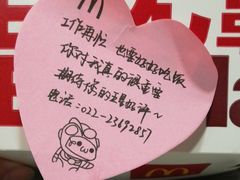 工作再忙 也要好好吃饭
你对我真的很重要
期待你的五星好评~
电话:022-23692857